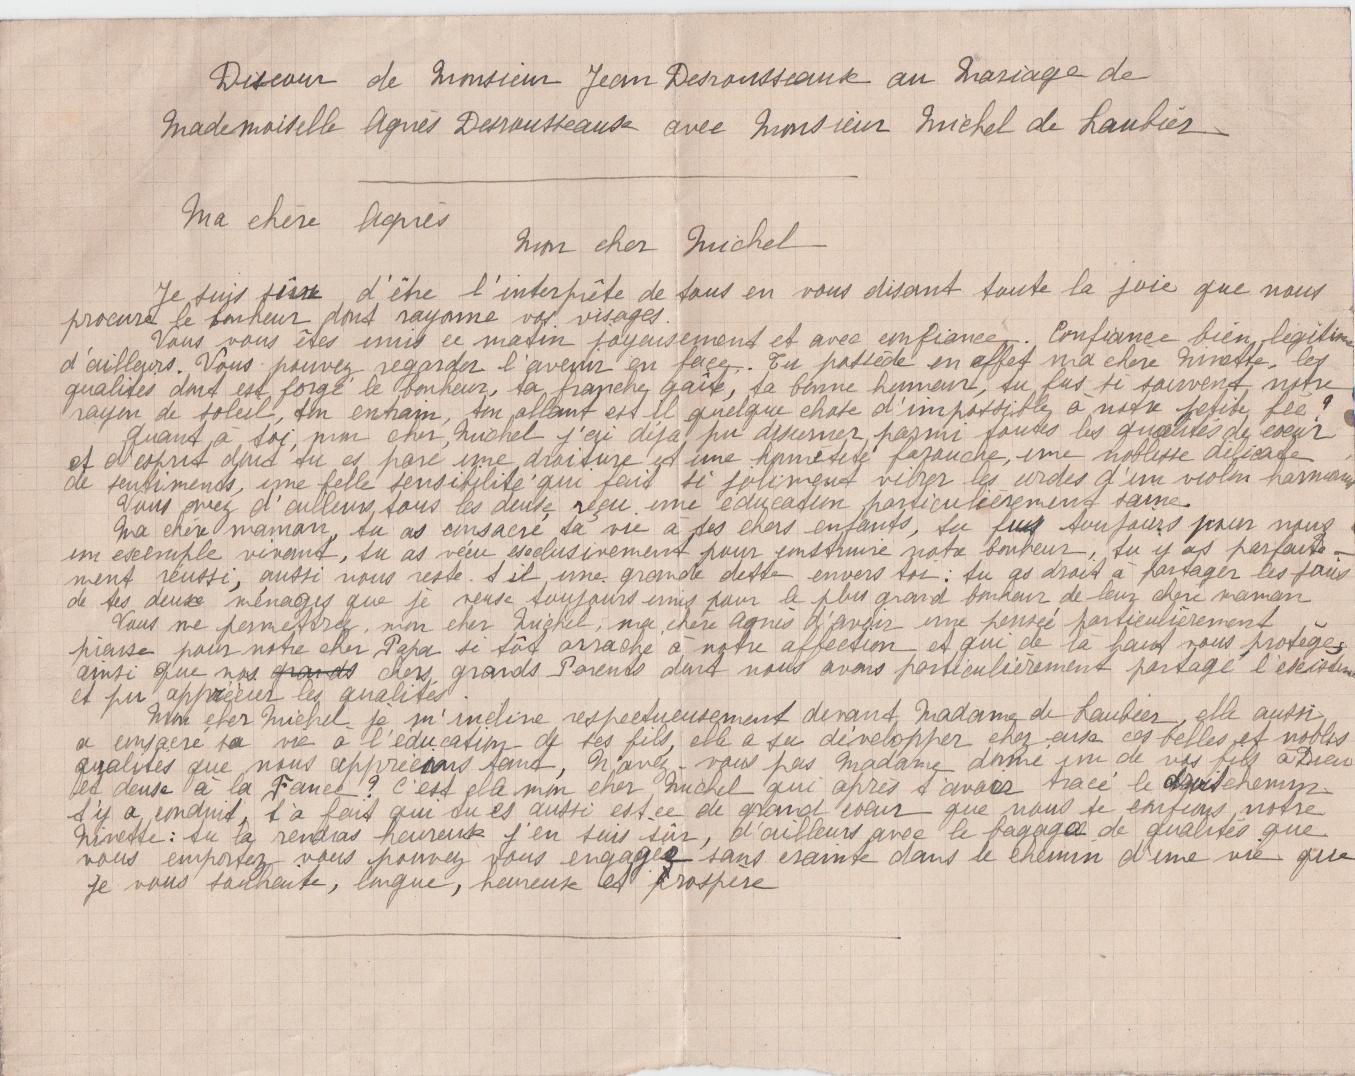 Discour de Monsieur Jean Desrousseaux au Mariage de
Mademoiselle Agnès Desrousseaux avec Monsieur Michel de Laubier
Ma chère Agnès
Mon cher Michel
Je suis sûr d'être l'interprête de tous en vous disant toute la joie que nous
procure le bonheur dont rayonne vos visages.
Vous vous êtes unis ce matin joyeusement et avec confiance. Confiance bien legitime
d'ailleurs. Vous pouvez regarder l'avenir en face. Tu possède en effet ma chère Minette, les
qualités dont est forgé le bonheur, ta franche gaité, ta bonne humeur, tu fus si souvent notre
rayon de soleil, ton entrain, ton allant est il quelque chose d'impossible à notre petite fée ?
Quant à toi, mon cher Michel j'ai déja pu discerner parmi toutes les qualités de coeur
et d'esprit dont tu es paré une droiture et une honnêteté farouche, une noblesse délicate
de sentiments, une telle sensibilité qui fait si joliment vibrer les cordes d'un violon
Vous avez d'ailleurs tous les deux reçu une éducation particulièrement saine.
Ma chère maman, tu as consacré ta vie a tes chers enfants, tu fus toujours pour nous
un exemple vivant, tu as vécu exclusivement pour construire notre bonheur, tu y as parfaite-
ment réussi, aussi nous reste t'il une grande dette envers toi : tu as droit à partager les joies
de tes deux ménages que je veux toujours unis pour le plus grand bonheur de leur chère maman
Vous me permettrez, mon cher Michel, ma chère Agnès d'avoir une pensé particulièrement
pieuse pour notre cher Papa si tôt arraché à notre affection et qui de là haut vous protège,
ainsi que nos grands chers grands Parents dont nous avons particulièrement partagé l'existence
et pu apprécier les qualités.
Mon cher Michel je m'incline respectueusement devant Madame de Laubier, elle aussi
a consacré sa vie a l'éducation de ses fils, elle a su développer chez eux ces belles et nobles
qualités que nous apprécions tant, N'avez-vous pas Madame donné un de vos fils à Dieu
et deux à la France ? C'est elle mon cher Michel qui après t'avoir tracé le droit chemin
t'y a conduit, t'a fait qui tu es aussi est ce de grand coeur que nous te confions notre
Minette : tu la rendras heureuse j'en suis sûr, d'ailleurs avec le bagage de qualités que
vous emportez vous pouvez vous engager sans crainte dans le chemin d'une vie que
je vous souhaite, longue, heureuse et prospère